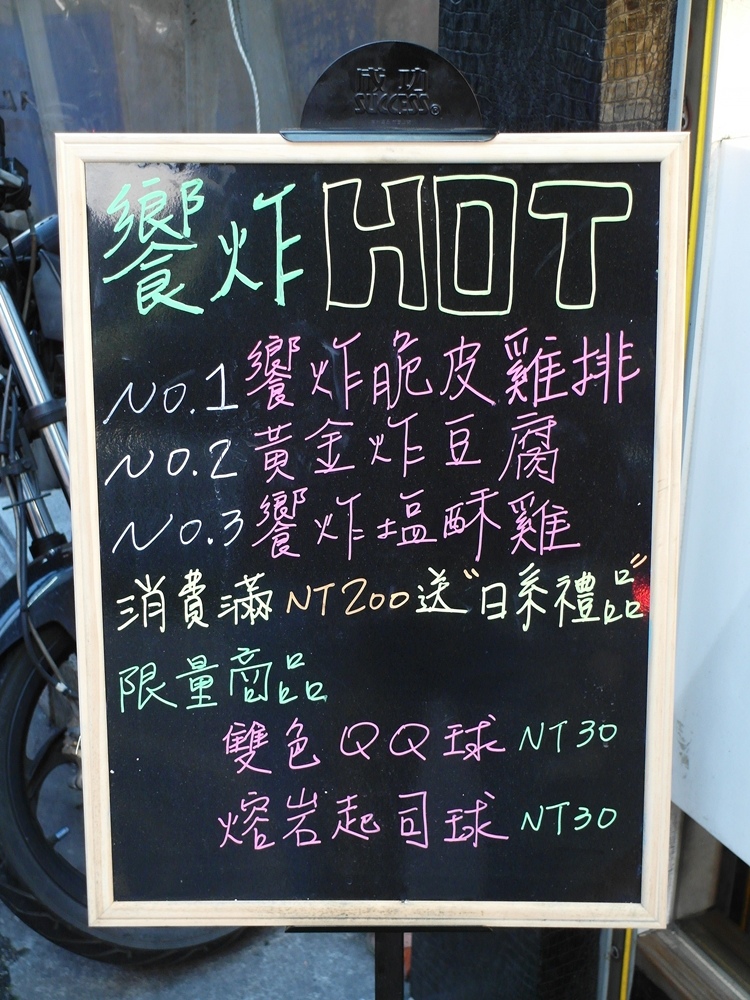 成功
SUCCESS®
饗炸HOT
NO.1饗炸脆皮雞排
NO.2黃金炸豆腐
NO.3饗炸塩酥雞
消費滿NT200送"日系禮品"
限量商品
雙色QQ球NT30
熔岩起司球NT30